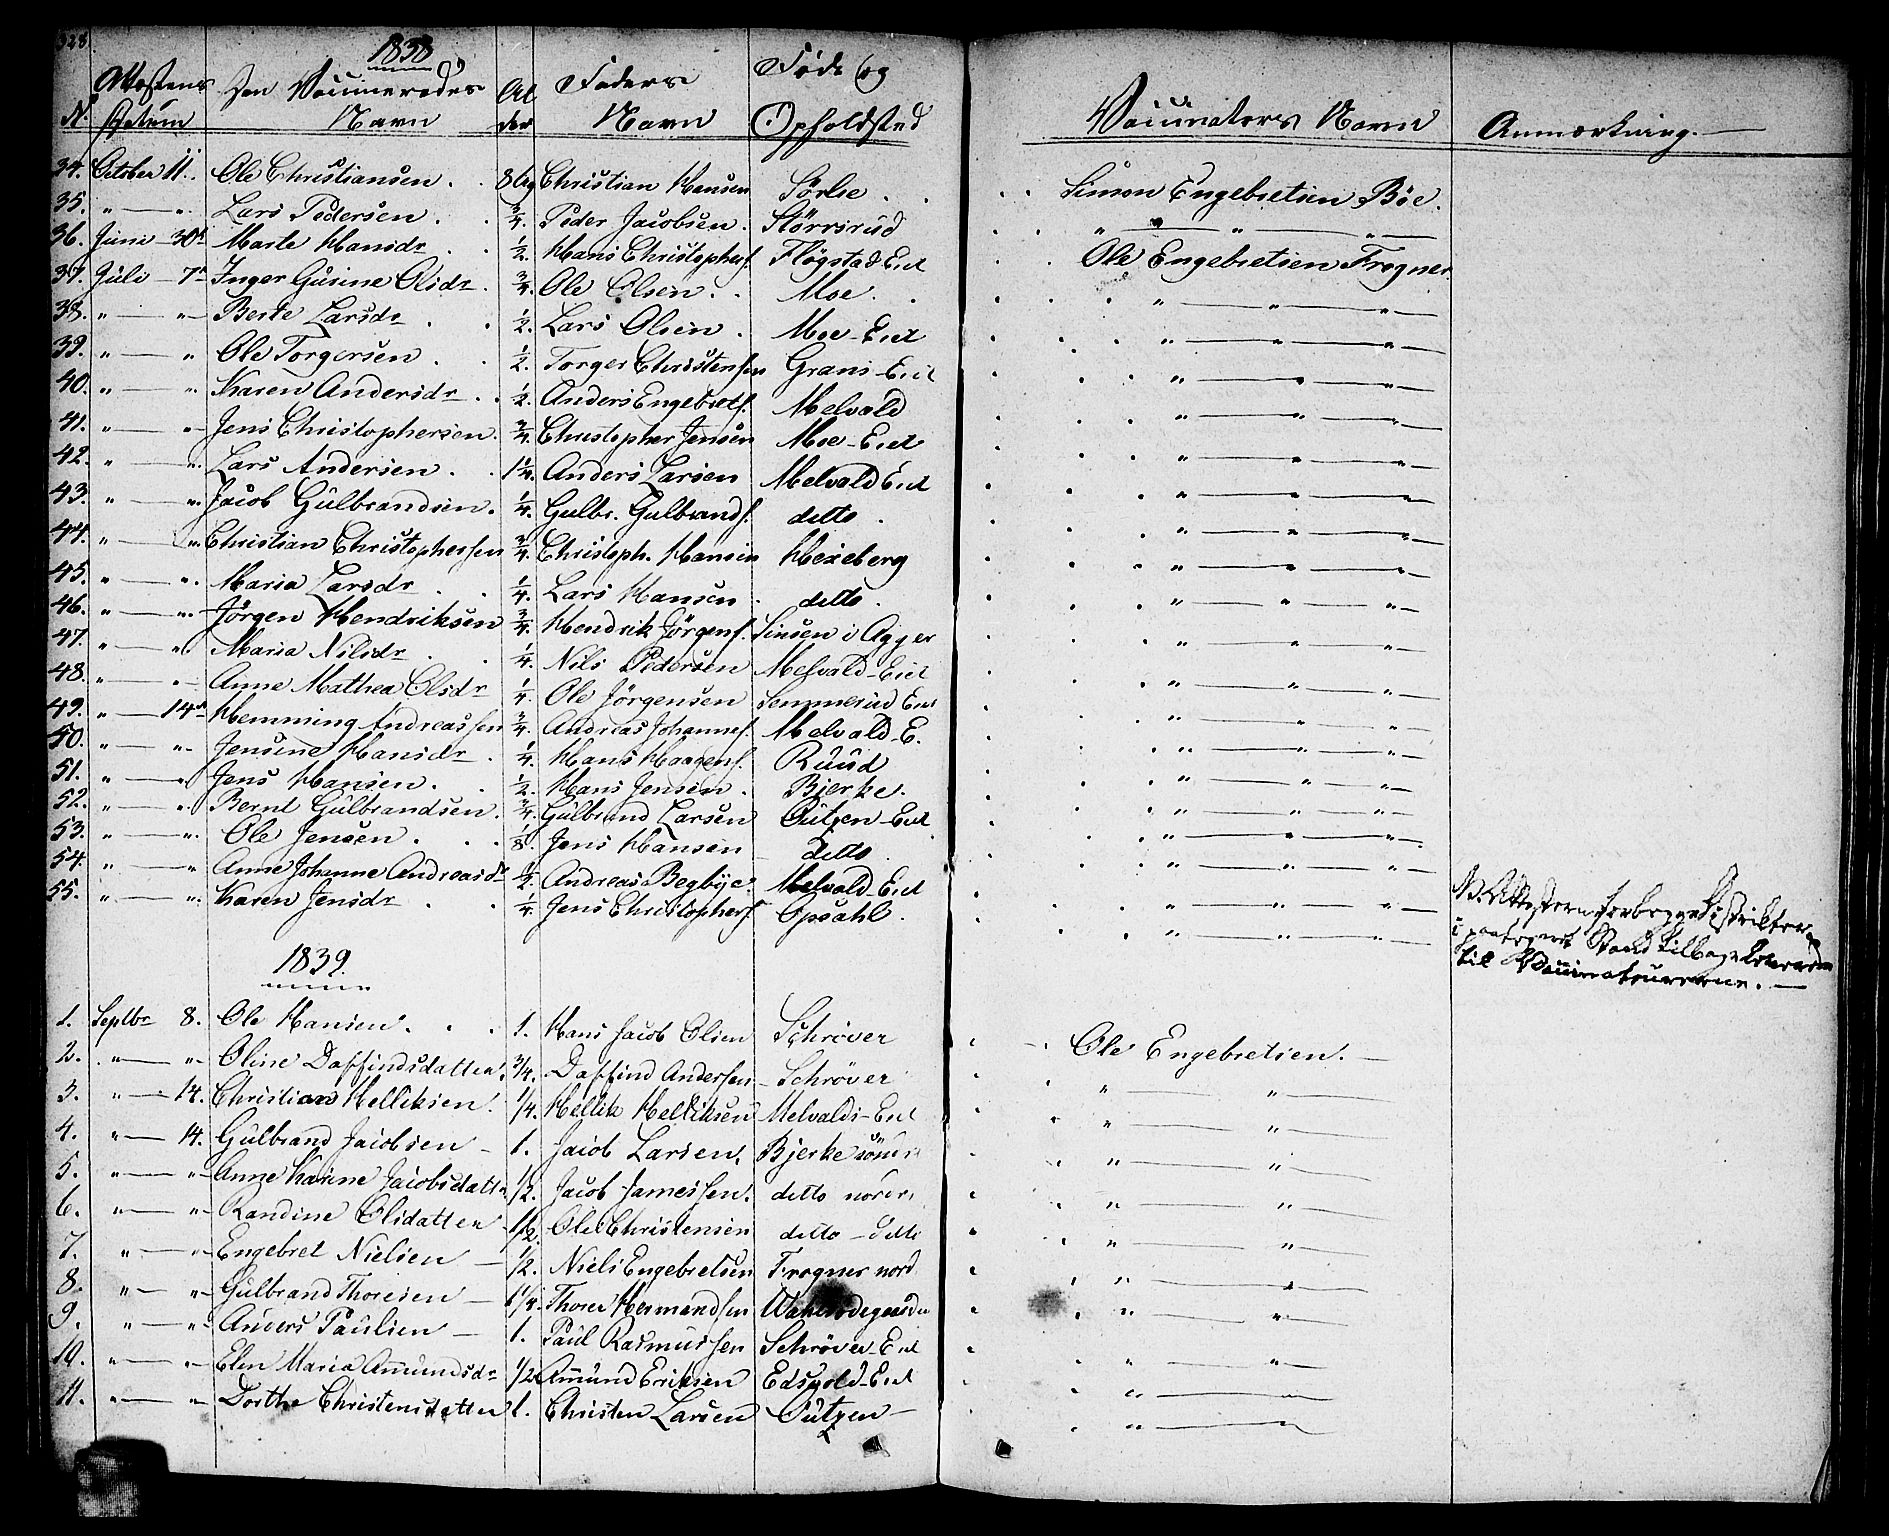 328
1838
N. Attestens Datum | Den Vaccineredes Navn | Alder | Faders Navn | Føde og Opholdsted | Vaccinators Navn | Anmærkning.
34. October 11. Ole Christiansen . . 8 Christian Hansen Sörlie . . Simon Engebretsen Böe.
35. " — " Lars Pedersen . . 3/4. Peder Jacobsen. Störrsrud " — " — " —
36. Juni — 30t Marte Hansdr . . 1/2. Hans Christophers. Flögstad Eiet Ole Engebretsen Frogner
37. Juli — 7de Inger Gusine Olsdr. 3/4. Ole Olsen. . Moe. . " — " — " —
38. " — " Berte Larsdr . . 1/2. Lars Olsen . Moe-Eiet " — " — " —
39. " — " Ole Torgersen . . 1/2. Torger Christensen Grans-Eiet " — " — " —
40. " — " Karen Andersdr . . 1/2. Anders Engebrets. Melvald " — " — " —
41. " — " Jens Christophersen. 3/4. Christopher Jensen Moe-Eiet " — " — " —
42. " — " Lars Andersen . . 1 1/4. Anders Larsen Melvald Eiet " — " — " —
43. " — " Jacob Gulbrandsen. 1/4. Gulbr. Gulbrands. ditto . " — " — " —
44. " — " Christian Christophersen 3/4. Christoph. Hansen Hexeberg " — " — " —
45. " — " Maria Larsdr . . 1/4. Lars Hansen . ditto . " — " — " —
46. " — " Jörgen Hendriksen 3/4. Hendrik Jörgens. Sinsen i Agger " — " — " —
47. " — " Maria Nilsdr . . 1/4. Nils Pedersen Melvald-Eiet " — " — " —
48. " — " Anne Mathea Olsdr 1/4. Ole Jörgensen Semmerud Eiet " — " — " —
49. " — 14de Hemming Andreassen 3/4. Andreas Johannes. Melvald-E. " — " — " —
50. " — " Jensine Hansdr . 1/4. Hans Haagens. Ruud " — " — " —
51. " — " Jens Hansen . . 1/2. Hans Jensen . Bjerke. " — " — " —
52. " — " Bernt Gulbrandsen. 3/4. Gulbrand Larsen Outzen-Eiet " — " — " —
53. " — " Ole Jensen . . . 1/8. Jens Hansen ditto . " — " — " —
54. " — " Anne Johanne Andreasdr 1/2. Andreas Begbye. Melvald-Eiet " — " — " —
55. " — " Karen Jensdr . . 1/4. Jens Christophers. Opsahl . " — " — " —
NB. Attesterne for begge Distrikter
i paategnet Stand tilbageleverede
til Vaccinateurerne. —
1839.
1. Septbr 8. Ole Hansen . . . 1. Hans Jacob Olsen Schröver Ole Engebretsen. —
2. " — " Oline Daffindsdatter. 3/4. Daffind Andersen Schröver " — " —
3. " — 14. Christian Helliksen. 1/4. Hellik Helliksen Melvalds-Eiet " — " —
4. " — 14. Gulbrand Jacobsen — 1. Jacob Larsen. Bjerke söndr " — " —
5. " — " Anne Karine Jacobsdatter 1/2. Jacob Jamessen. ditto nordr " — " —
6. " — " Randine Olsdatter 1/2. Ole Christensen ditto — ditto " — " —
7. " — " Engebret Nielsen — 1/2. Niels Engebretsen Frogner nord " — " —
8. " — " Gulbrand Thoresen — 1 1/4. Thorer Hermandsen " — " —
9. " — " Anders Paulsen — 1. Paul Rasmussen Schröver-Eiet " — " —
10. " — " Elen Maria Amundsdr 1/2 Amund Eriksen Edsvold-Eiet " — " —
11. " — " Dorthe Christensdatter 1. Christen Larsen Outzen — " — "